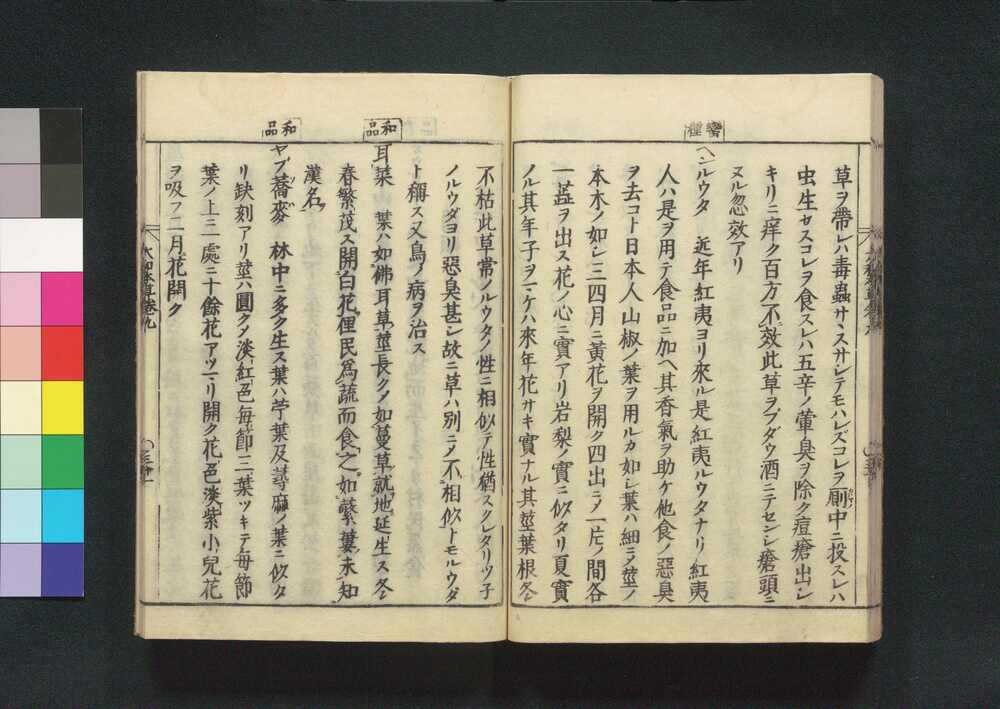 草ヲ帶レハ毒蟲サヽスサシテモハレズコレヲ厠中ニ投スレハ
虫生セスコレヲ食スレハ五辛ノ葷臭ヲ除ク痘瘡出シ
キリニ痒ク百方不效此草ヲブダウ酒ニテセンシ瘡頭ニ
ヌル忽效アリ
蠻種
ヘンルウタ 近年紅夷ヨリ來ル是紅夷ルウタナリ紅夷
人ハ是ヲ用テ食品ニ加ヘ其香氣ヲ助ケ他食ノ惡臭
ヲ去コト日本人山椒ノ葉ヲ用ルカ如シ葉ハ細ニノ莖ノ
本木ノ如シ三四月ニ黃花ヲ開ク四出ニノ一片ノ間各
一蕋ヲ出ス花ノ心ニ實アリ岩梨ノ實ニ似タリ夏實
ノル其年子ヲマケハ來年花サキ實ナル其莖葉根冬
不枯此草常ノルウタノ性ニ相似テ性猶スクレタリツ子
ノルウダヨリ惡臭甚シ故ニ草ハ別ニノ不相似トモルウダ
ト稱ス又鳥ノ病ヲ治ス
和品
耳菜 葉ハ如佛耳草莖長クノ如蔓草就地延生ス冬
春繁茂ス開白花俚民爲蔬而食之如蘩蔞未知
漢名
和品
ヤブ蕎麥 林中ニ多ク生ス葉ハ苧葉及蕁麻ノ葉ニ似タ
リ缺刻アリ莖ハ圓クノ淡紅色每節三葉ツキテ每節
葉ノ上三處ニ十餘花アツマリ開ク花色淡紫小兒花
ヲ吸フ二月花開ク
大和本草卷九